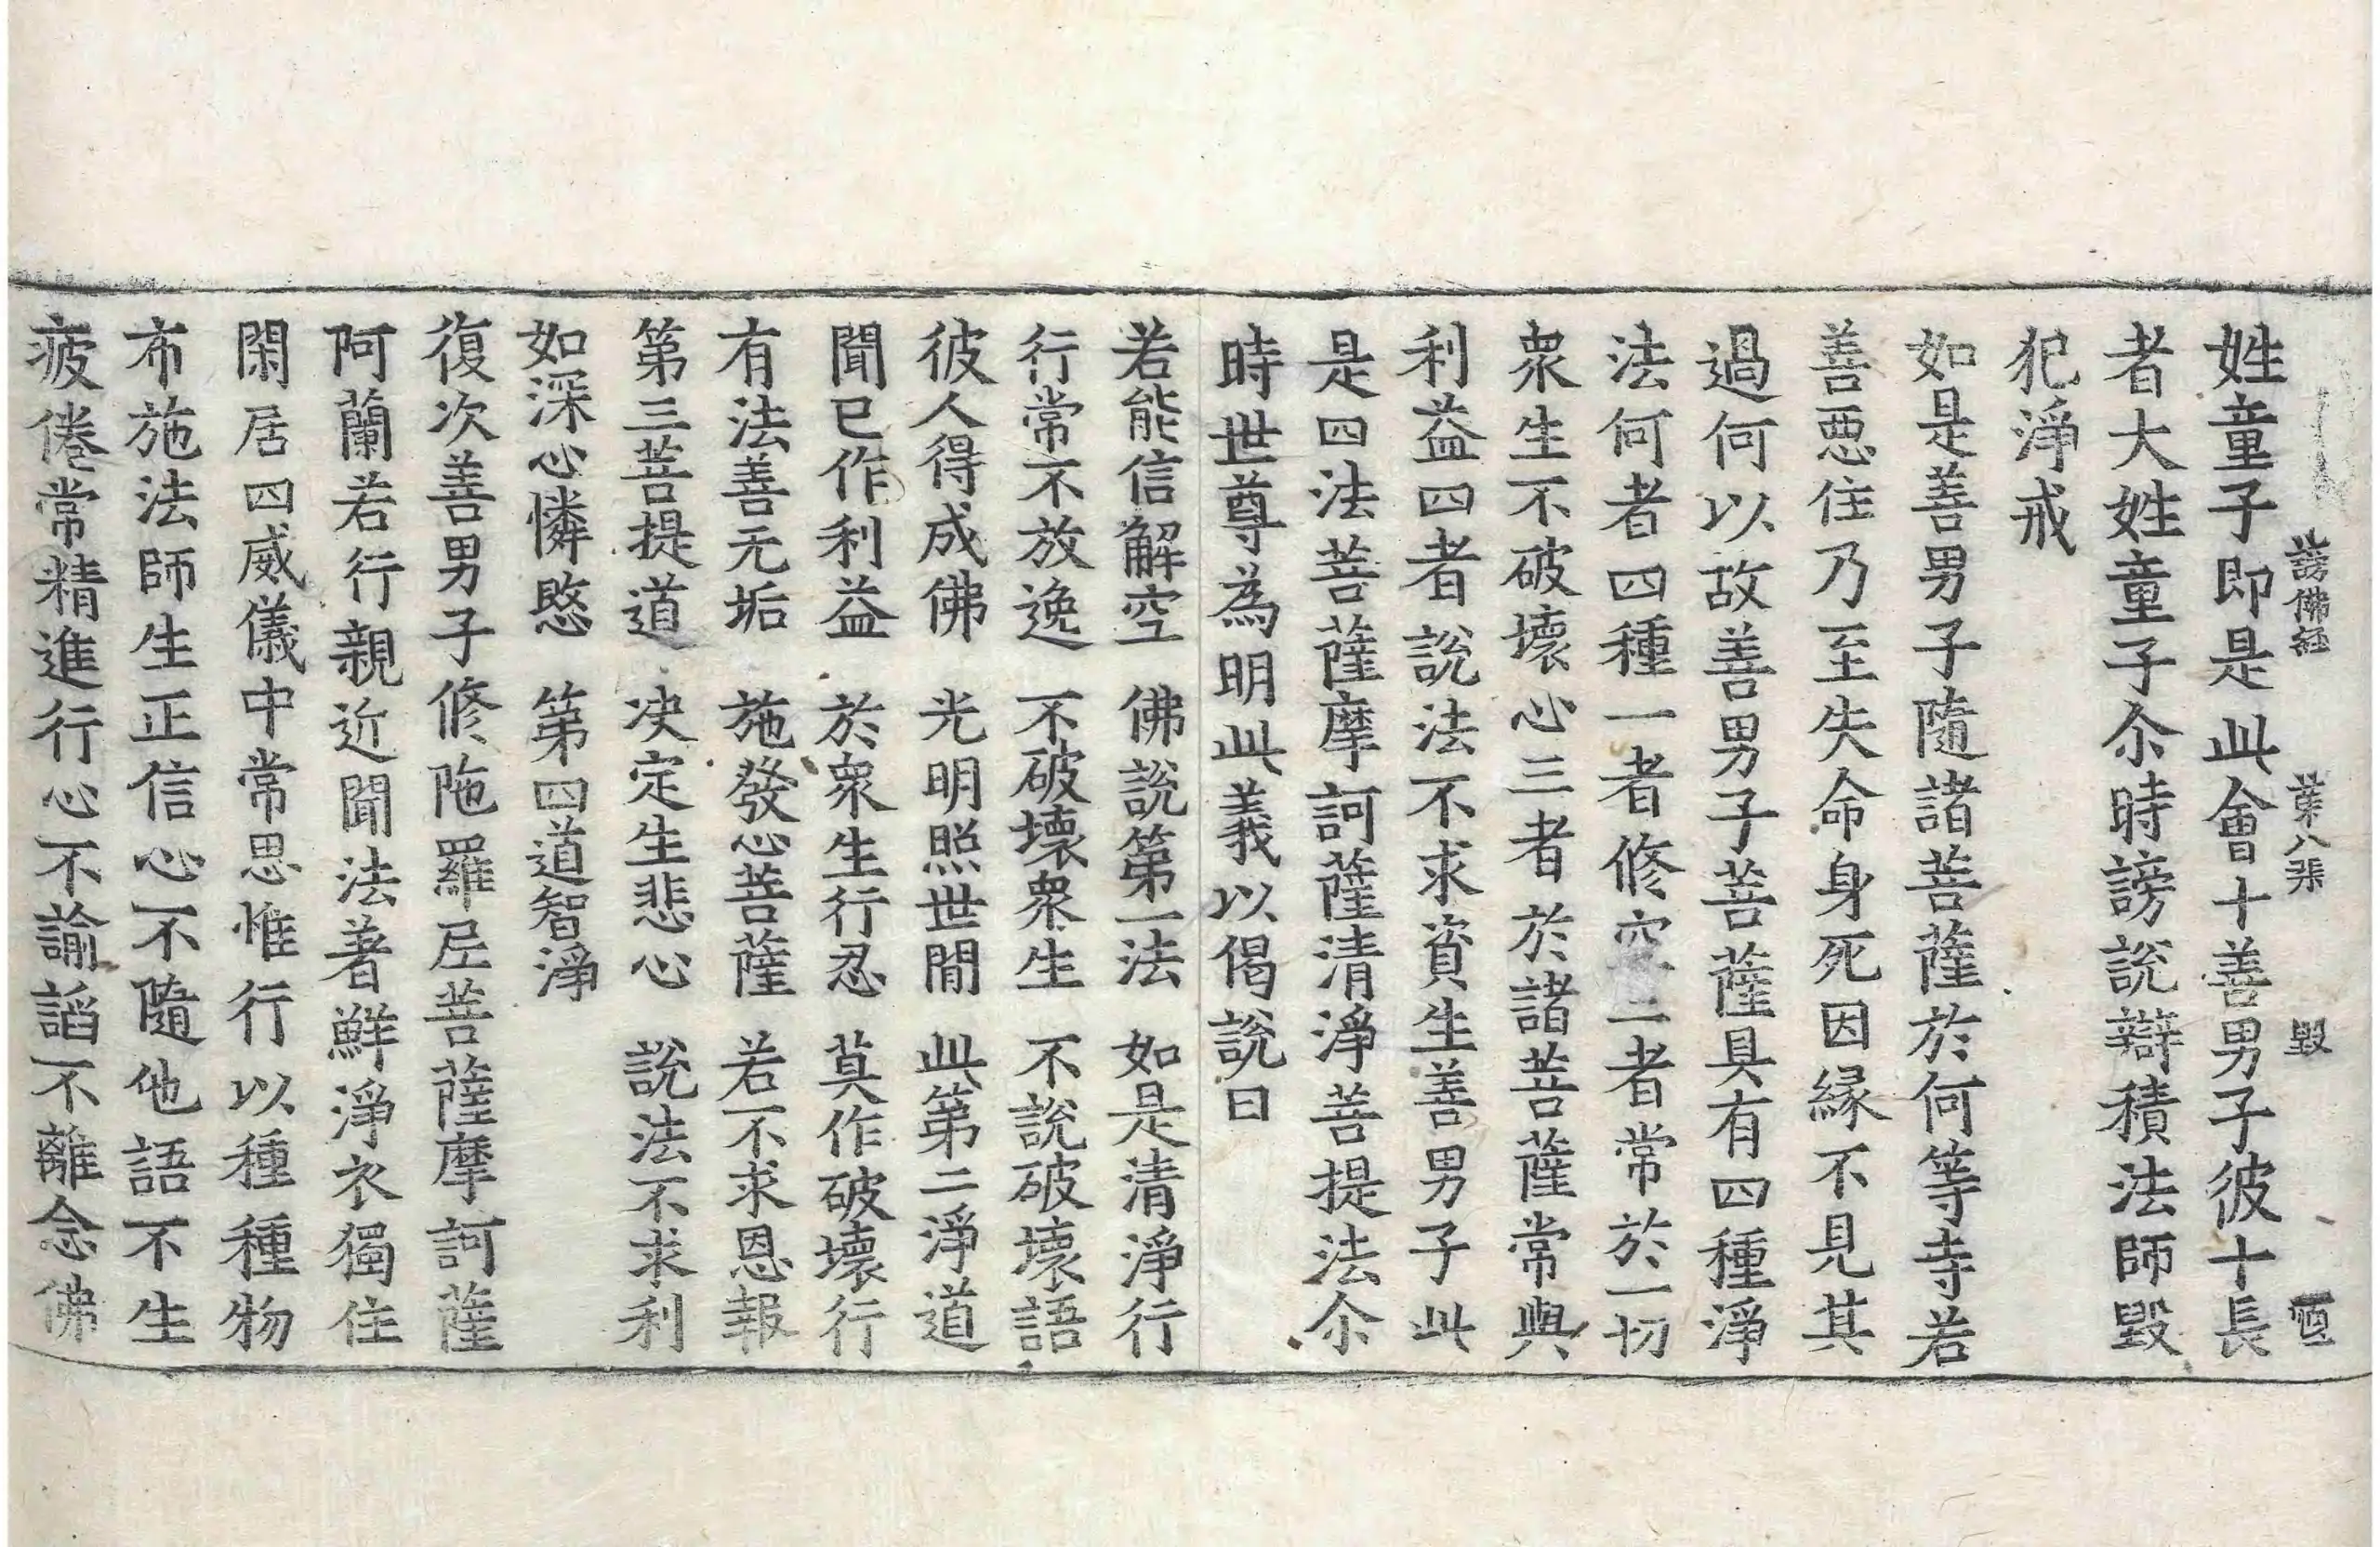 謗佛経　　葉八張　　毀　　恒
姓童子即是此會十善男子彼十長
者大姓童子尒時謗說辯積法師毀
犯淨戒
如是善男子隨諸菩薩於何等寺若
善惡住乃至失命身死因緣不見其
過何以故善男子菩薩具有四種淨
法何者四種一者修空二者常於一切
衆生不破壞心三者於諸菩薩常與
利益四者說法不求資生善男子此
是四法菩薩摩訶薩清淨菩提法尒
時世尊為明此義以偈說曰
若能信解空　佛說第一法　如是清淨行
行常不放逸　不破壞衆生　不說破壞語
彼人得成佛　光明照世間　此第二淨道
聞已作利益　於衆生行忍　莫作破壞行
有法善无垢　施發心菩薩　若不求恩報
第三菩提道　决定生悲心　說法不求利
如深心憐愍　第四道智淨
復次善男子修陁羅𡰱菩薩摩訶薩
阿蘭若行親近聞法著鮮淨衣獨住
閑居四威儀中常思惟行以種種物
布施法師生正信心不隨他語不生
疲倦常精進行心不諭謟不離念佛